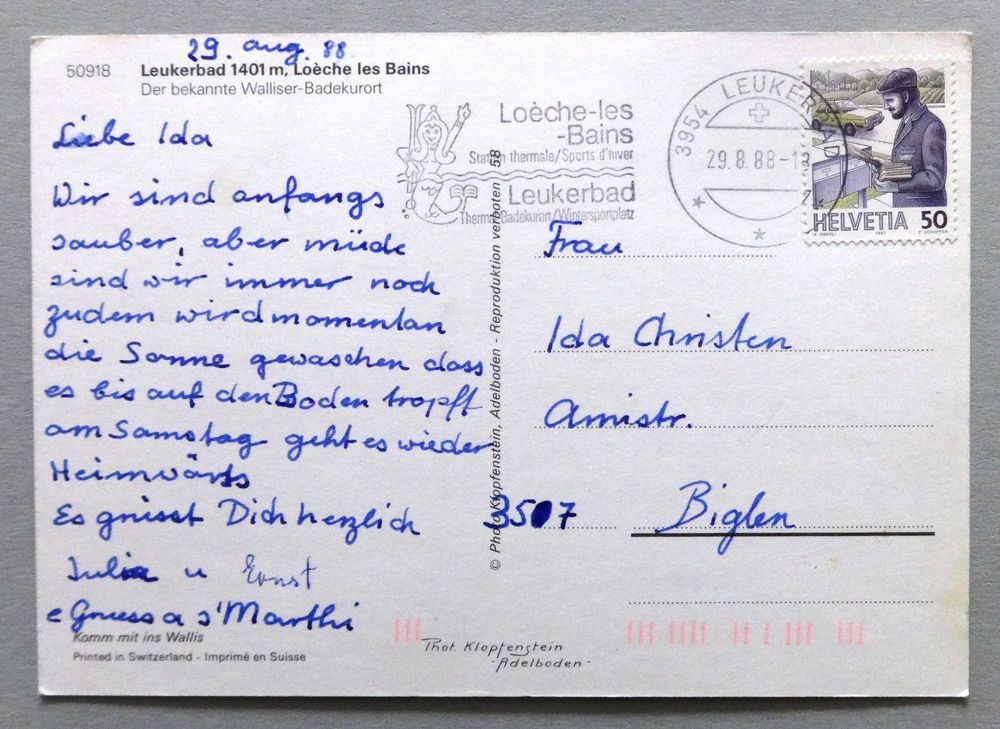 29. aug. 88
50918 Leukerbad 1401 m, Loèche les Bains
Der bekannte Walliser-Badekurort
Liebe Ida
Wir sind anfangs
sauber, aber müde
sind wir immer noch
zudem wird momentan
die Sonne gewaschen dass
es bis auf den Boden tropft
am Samstag geht es wieder
Heimwärts
Es grüsst Dich herzlich
Julia u Ernst
e Gruess a s'Marthi
Komm mit ins Wallis
Printed in Switzerland - Imprimé en Suisse
Loèche-les
-Bains
Station thermale/Sports d'hiver
Leukerbad
Thermal-Badekurort/Wintersportplatz
3954 LEUKERBAD
29.8.88-1
HELVETIA 50
K. OBERLI 1987
© Photo Klopfenstein, Adelboden - Reproduktion verboten 58
Frau
Ida Christen
Amistr.
3507 Biglen
Phot. Klopfenstein
-Adelboden-